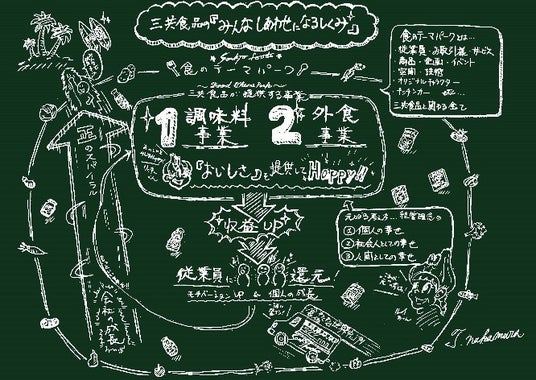 三共食品の『みんなしあわせになるしくみ』
Sankyo Foods
食のテーマパーク
三共食品が提供する事業
1 調味料事業
2 外食事業
『おいしさ』を提供して Happy!!
収益UP
従業員に還元!
モチベーションUP & 個人の成長
正のスパイラル
会社の成長
食のテーマパークとは…
・従業員・お取引様・サービス
・商品・企画・イベント
・空間・接客
・オリジナルキャラクター
・キッチンカー etc…
三共食品に関わる全て
元になる考え方…経営理念の
①個人の幸せ
②社会人としての幸せ
③人間としての幸せ
T. nakamura